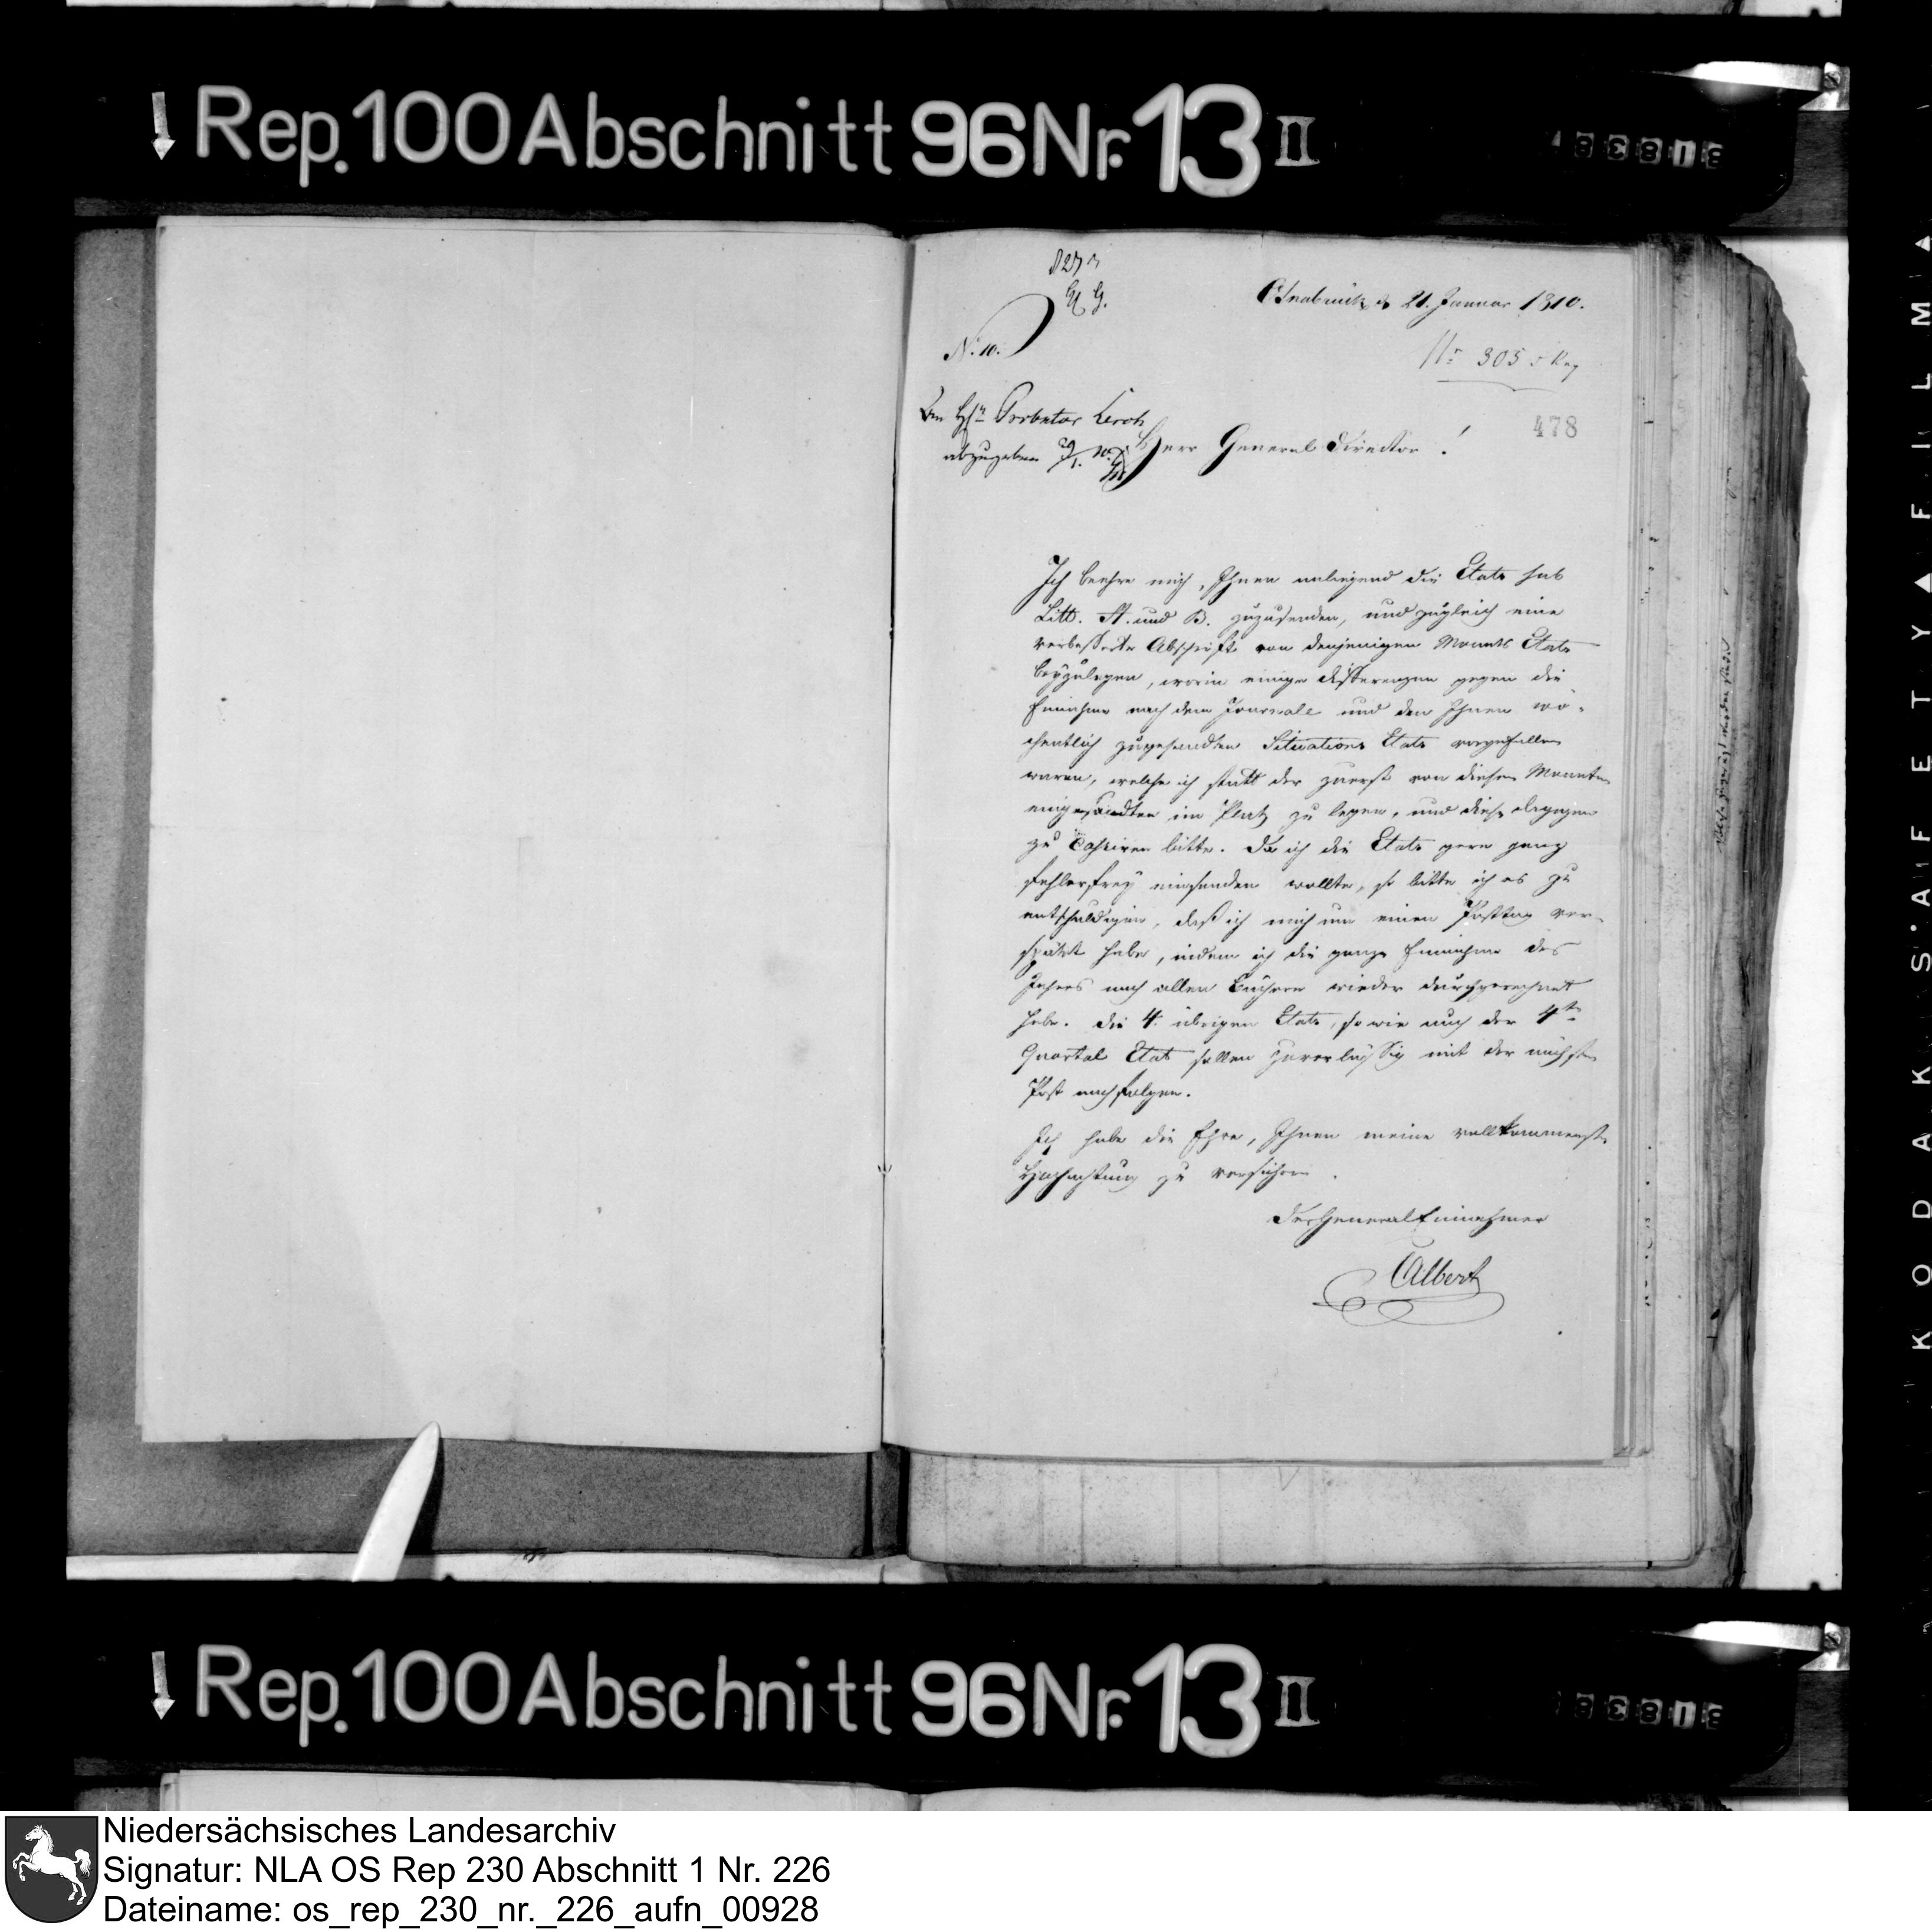 Rep. 100 Abschnitt 96 Nr. 13 II
Osnabrück d 21. Januar 1810.
N. 10.
478
abzugeben
Herr General Director!
Ich beehre mich, Ihnen anliegend die Etats sub
Litt. A. und B. zuzusenden, und zugleich eine
verbesserte Abschrift von denjenigen Monats Etats
beyzulegen, worin einige Differenzen gegen die
Einnahme nach dem Journale und den Ihnen wö-
chentlich zugesandten Situations Etats vorgefallen
waren, welche ich statt der zuerst von diesen Monaten
eingesandten im Platz zu legen, und diese dagegen
zu cassiren bitte. Da ich die Etats gern ganz
fehlerfrey einsenden wollte, so bitte ich es zu
entschuldigen, daß ich mich um einen Posttag ver-
spätet habe, indem ich die ganze Einnahme des
Jahres nach allen Büchern wieder durchgerechnet
habe. Die 4. übrigen Etats, so wie auch der 4te
Quartal Etat sollen zuverlässig mit der nächsten
Post nachfolgen.
Ich habe die Ehre, Ihnen meine vollkommenste
Hochachtung zu versichern.
Der General Einnehmer
Albert
KODAK SAFETY FILM
Rep. 100 Abschnitt 96 Nr. 13 II
Niedersächsisches Landesarchiv
Signatur: NLA OS Rep 230 Abschnitt 1 Nr. 226
Dateiname: os_rep_230_nr._226_aufn_00928